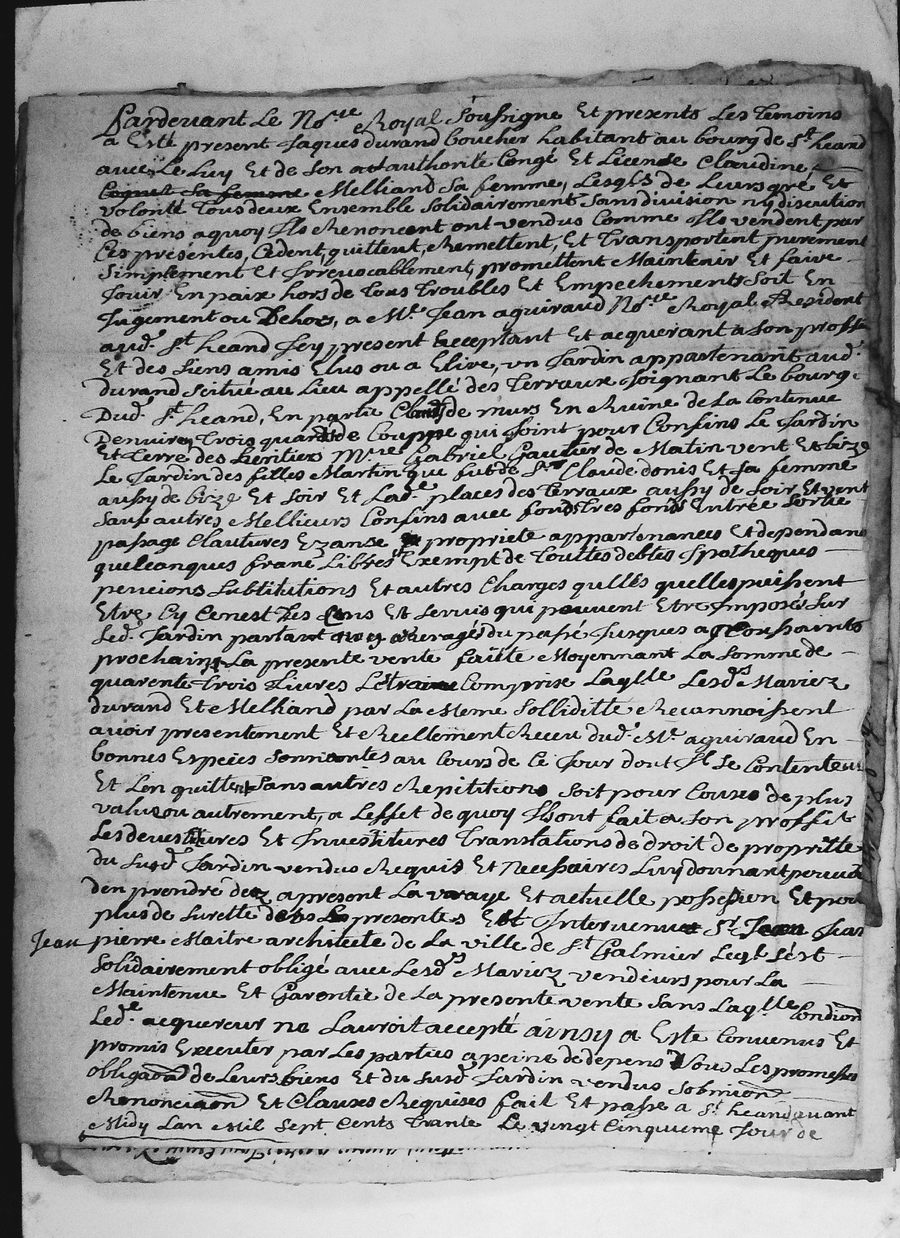 Pardevant Le No.re Royal Soussigné Et presents Les Temoins
a Esté present Jaques durand boucher habitant au bourg de St. heand
avec Luy Et de son authorité Congé Et License Claudine
Melliand Sa femme, Lesqls de Leurs gré Et
volonté Tous deux Ensemble Solidairement Sans division ny discution
de biens a quoy Ils Renoncent ont vendus Comme Ils vendent par
Ces présentes, Cedent, quittent, Remettent, Et Transportent purement
Simplement Et Irrevocablement, promettent Maintenir Et faire
Jouir En paix hors de Tous Troubles Et Empechements Soit En
Jugement ou Dehors, a Me. Jean aguiraud No.re Royal Resident
aud. St. heand Icy present acceptant Et acquerant a Son proffit
Et des Siens amis Elus ou a Elire, un Jardin appartenant aud.
durand Scitué au Lieu appellé des Terraux Joignant Le bourg
Dud. St. heand, En partie Clos de murs En Ruine de La Contenue
Denviron Trois quards de Couppe qui Joint pour Confins Le Jardin
Et Terre des heritiers Mre Gabriel Gautier de Matin vent Et bize
Le Jardin des filles Martin que fut de Sr. Claude donis Et Sa femme
aussy de bize Et Soir Et Lade. places des Terraux aussy de Soir Et vent
Sauf autres Mellieurs Confins avec fonds Tres fonds Entrée Sortie
passage Clautures Ezanse propriete appartenances Et dependances
quelconques franc Libres Exempt de Touttes debtes Ipotheques
pencions Substitutions Et autres Charges qulles quelles puissent
Etre Cy Cenest des Cens Et Servis qui peuvent Etre Imposés Sur
Led. Jardin partant arreragés du passé Jusques a Toussaints
prochain, La presente vente faitte Moyennant La Somme de
quarente Trois Livres Letraine Comprise Laqlle Lesds. Mariez
durand Et Melliand par La Meme Solliditté Reconnoissent
avoir presentement Et Reellement Receu dud. Me. aguiraud En
bonnes Especes Sonnantes au Cours de Ce Jour dont Ils Se Contentent
Et Len quittent Sans autres Repititions Soit pour Cause de plus
value ou autrement, a Leffet de quoy Ils ont fait a Son proffit
Les devestitures Et Investitures Translations de droit de proprietté
du Susd. Jardin vendus Requis Et Necessaires Luy donnant pouvoir
den prendre dez a present La vraye Et actuelle possession Et pour
plus de Surette des presentes Est Intervenue Sr. Jean
Jean pierre Maitre architecte de La ville de St. Galmier Leql. Sest
Solidairement obligé avec Lesds. Mariez vendeurs pour La
Maintenue Et Garentie de La presente vente Sans Laqlle Condition
Lede. acquereur ne Lauroit accepté ainsy a Este Convenus Et
promis Executer par Les parties a peine de depens Sous Les promesses
obligaon de Leurs biens Et du Susd. Jardin vendus Sobmion
Renonciaon Et Clauses Requises fait Et passé a St. heand avant
Midy Lan Mil Sept Cents Trante Le vingt Cinquieme Jour de